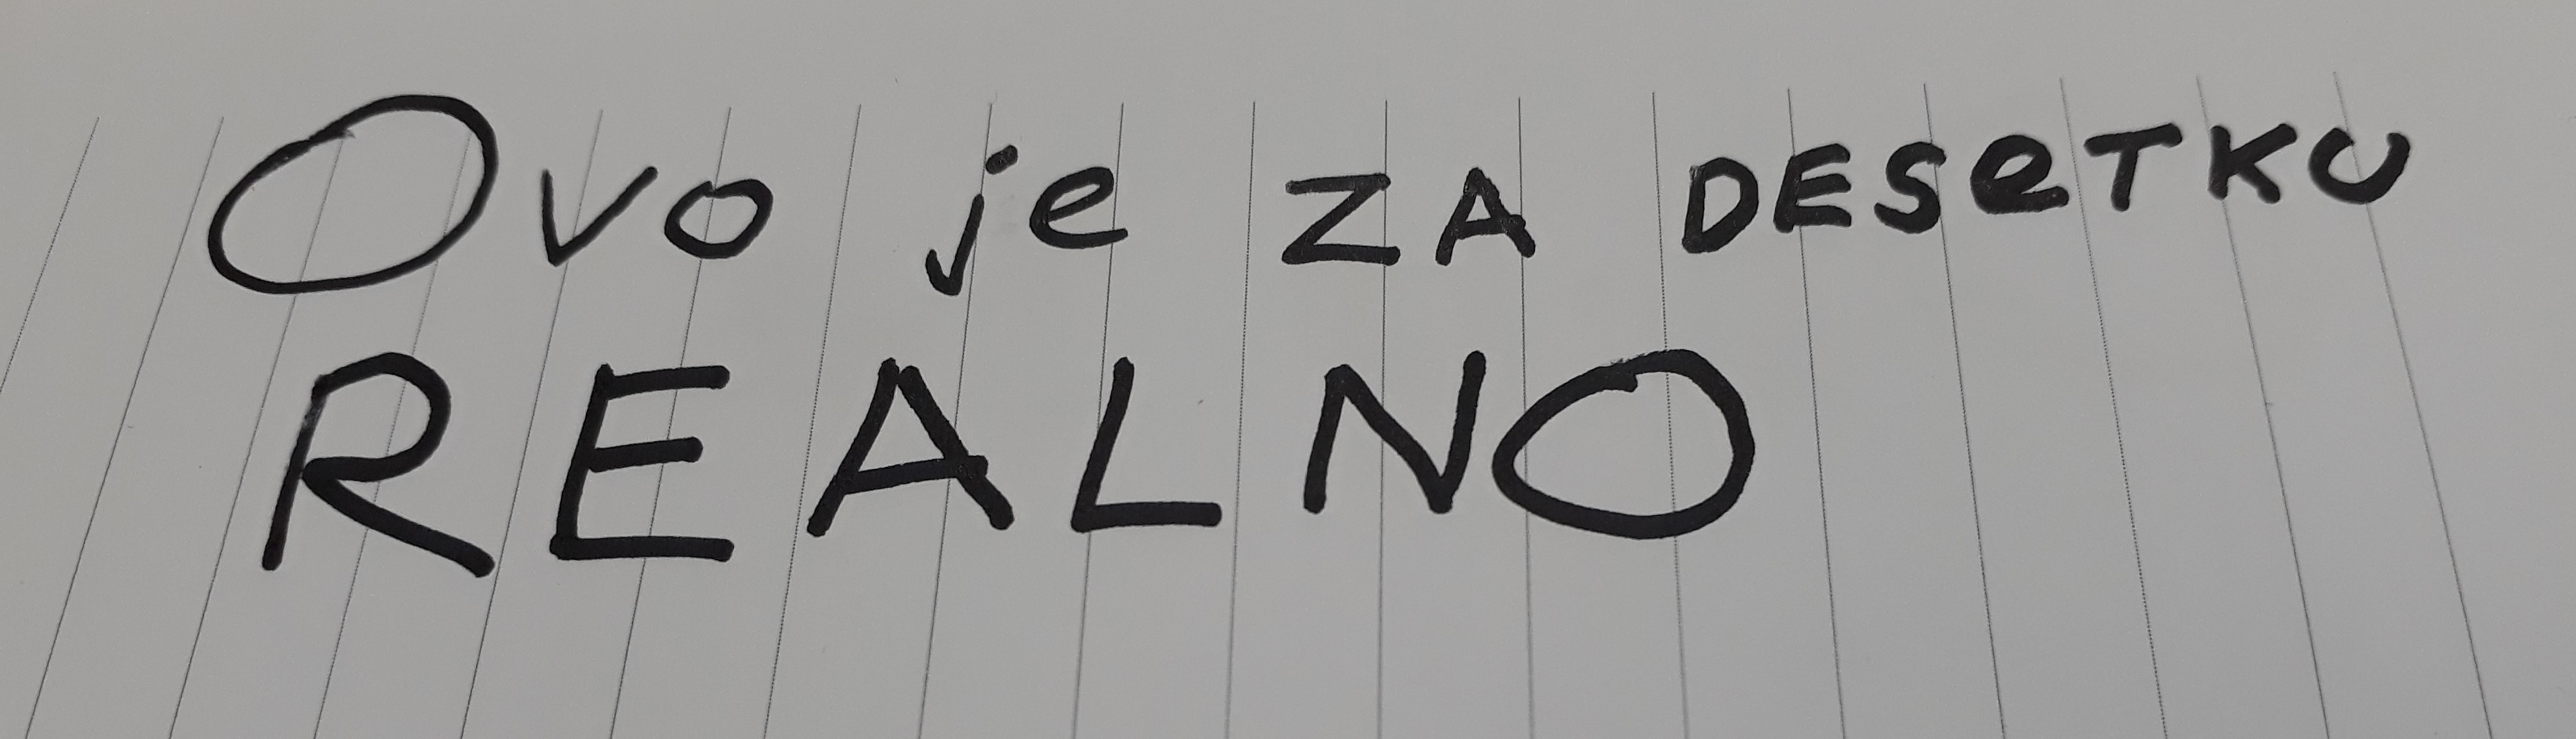 Ovo je ZA DESeTKU
REALNO